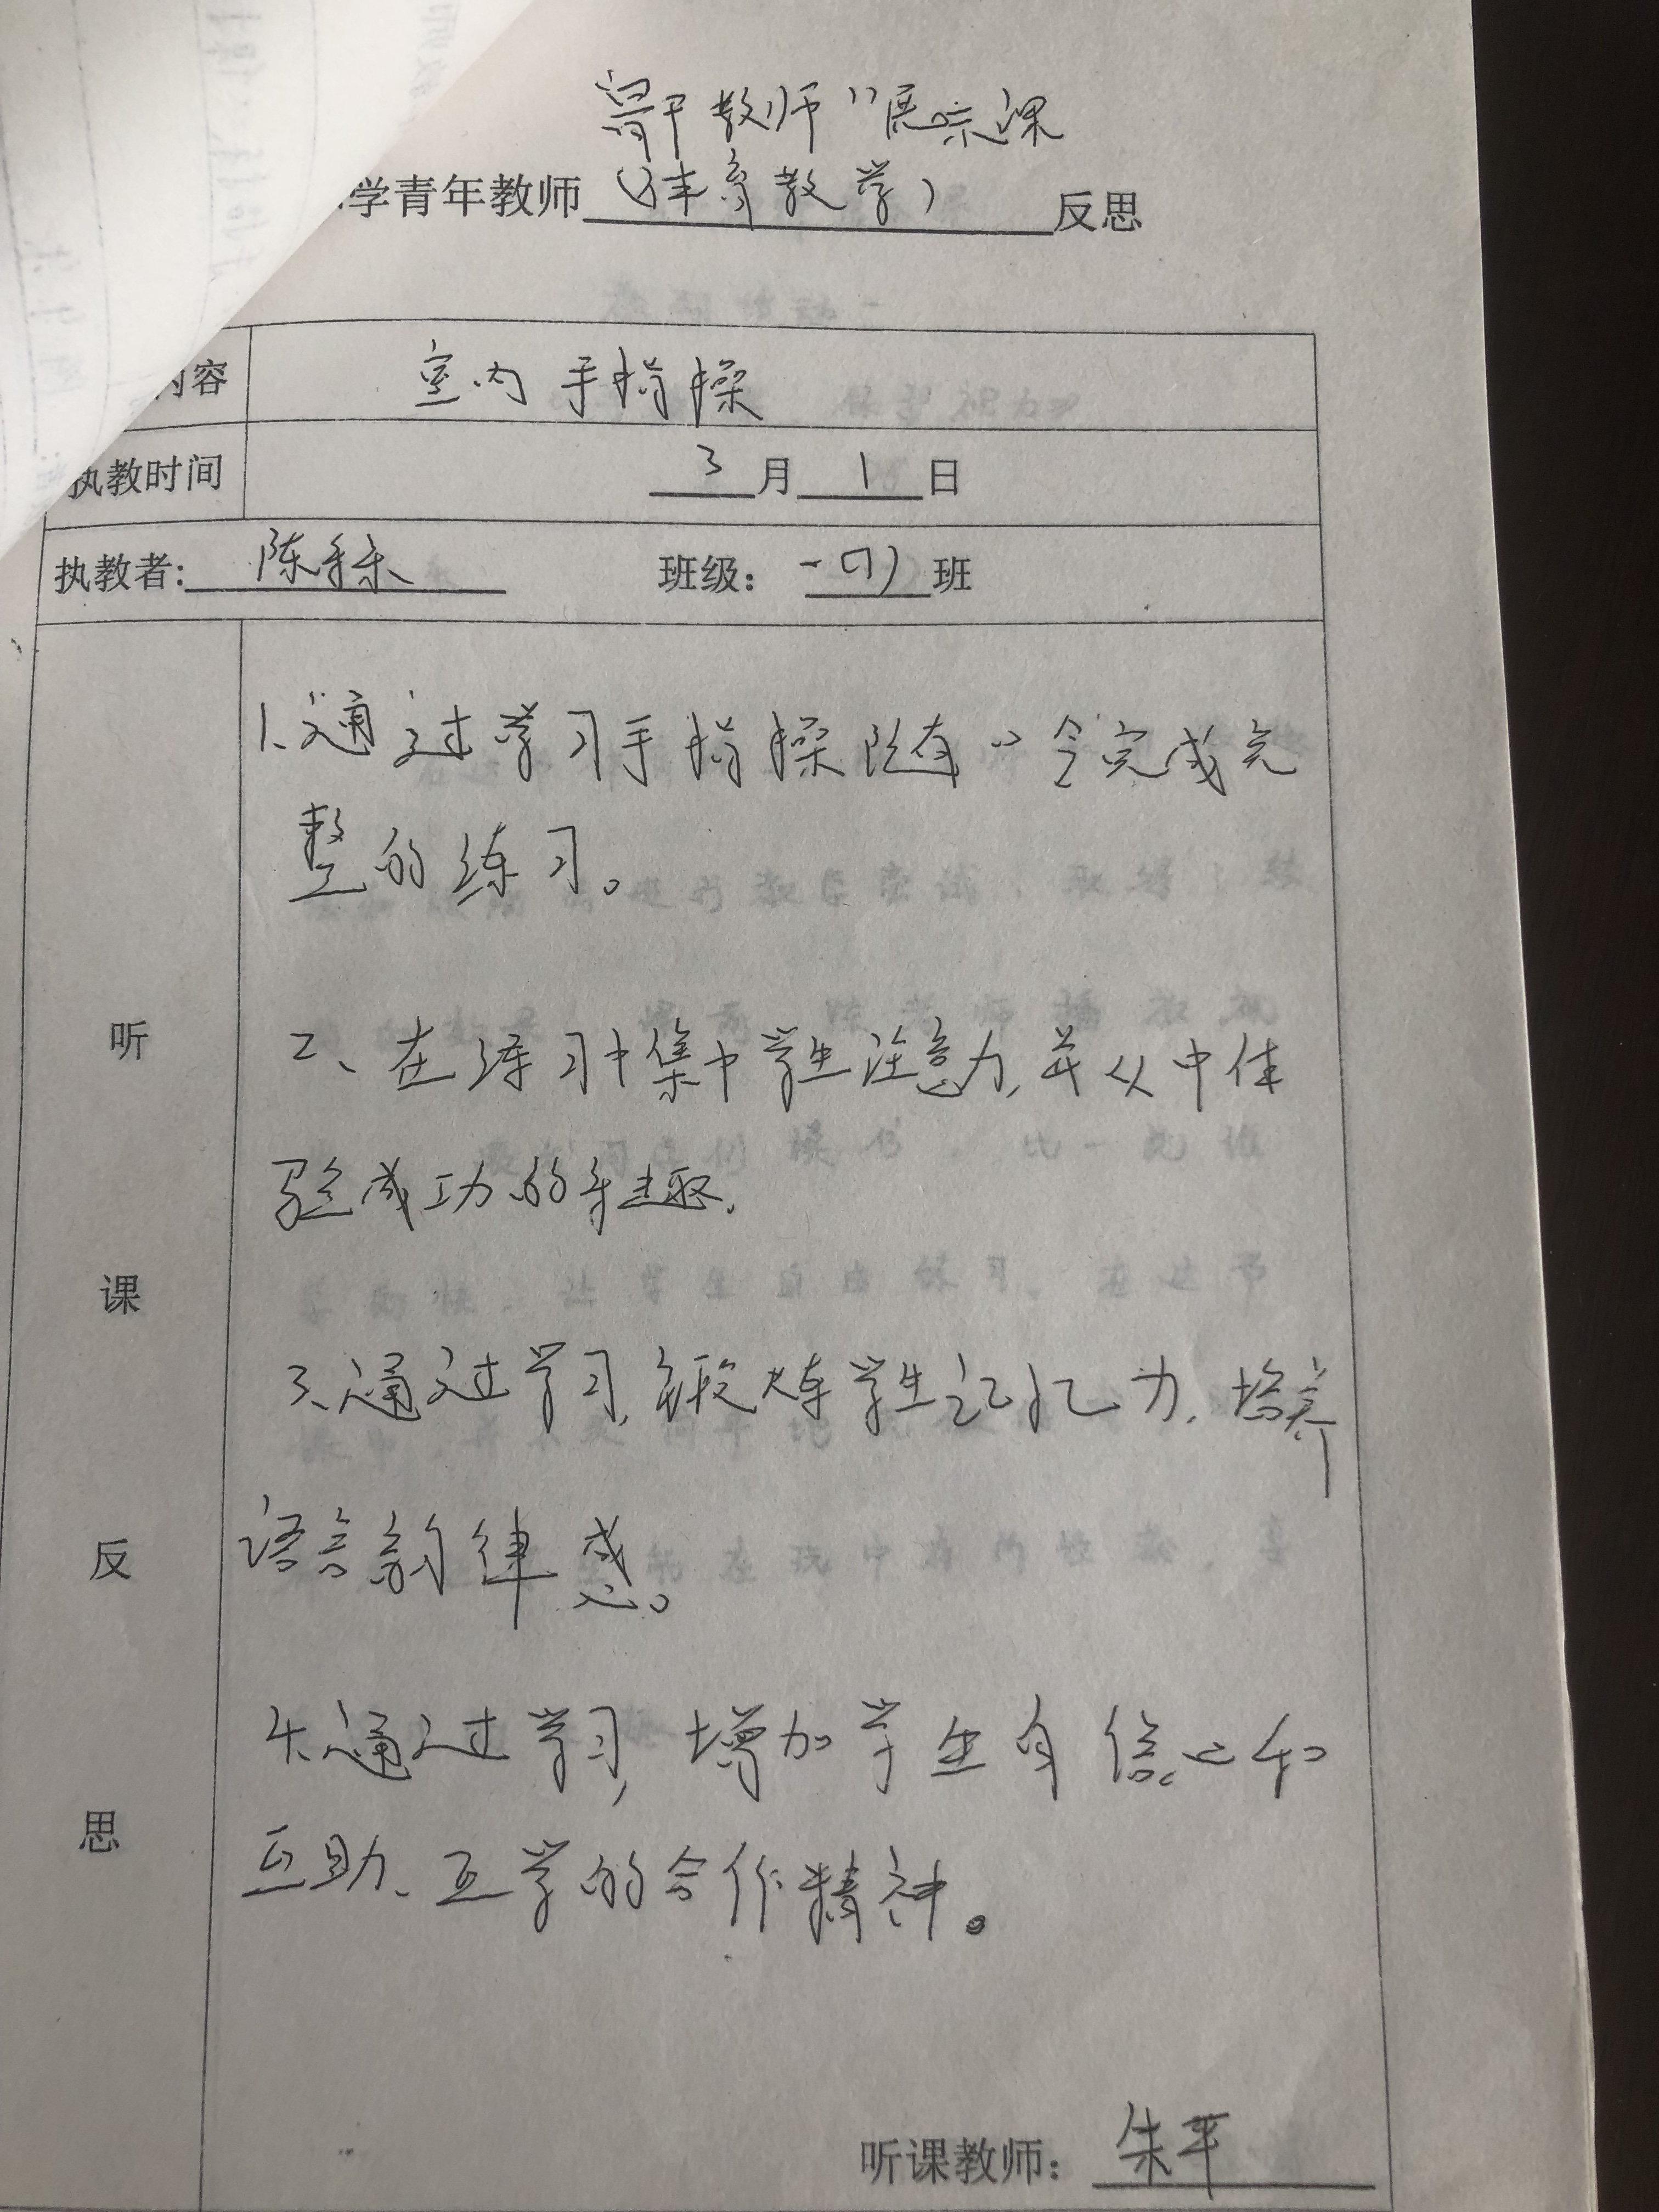 骨干教师"展示课
学青年教师(体育教学)反思
内容 室内手指操
执教时间 3月1日
执教者: 陈 班级: 一(7)班
1、通过学习手指操随着口令完成完
整的练习。
2、在练习中集中学生注意力,并从中体
验成功的乐趣.
3、通过学习,锻炼学生记忆力,培养
语言韵律感。
4、通过学习,增加学生自信心和
互助、互学的合作精神。
听
课
反
思
听课教师: 朱平